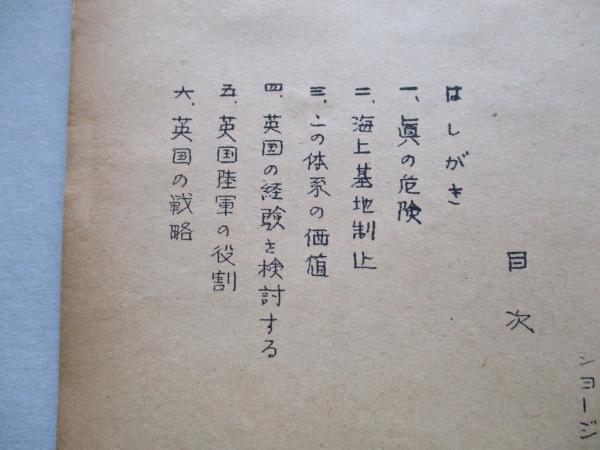 ショージ
目次
はしがき
一、眞の危険
二、海上基地制止
三、この体系の価値
四、英国の経験を検討する
五、英国陸軍の役割
六、英国の戦略